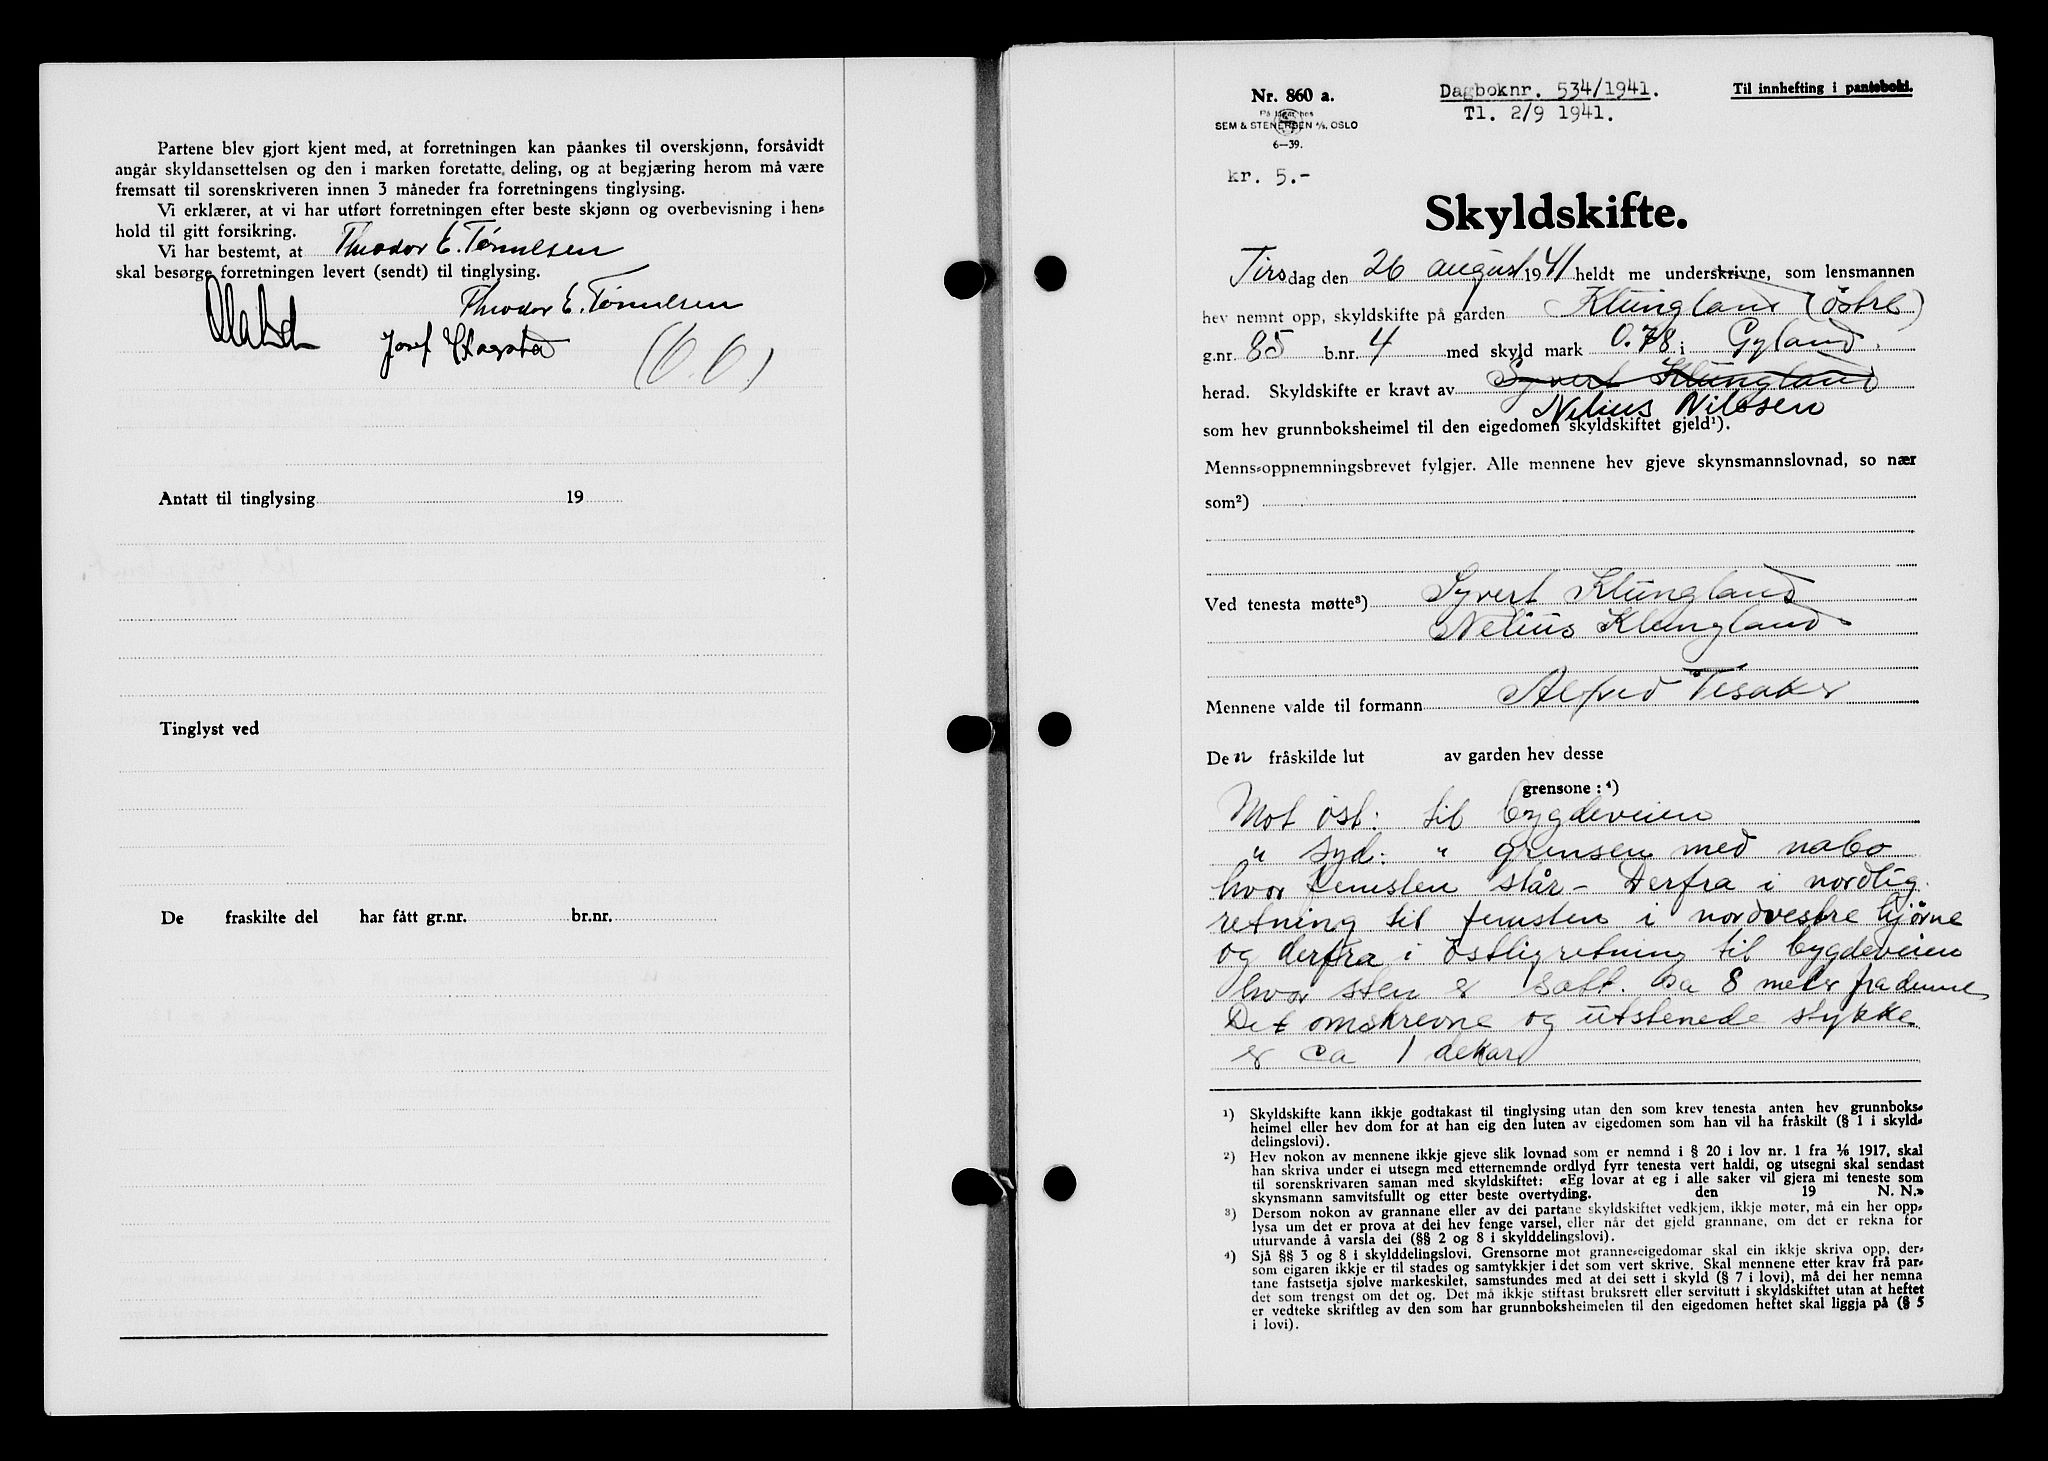 Partene blev gjort kjent med, at forretningen kan påankes til overskjønn, forsåvidt
angår skyldansettelsen og den i marken foretatte deling, og at begjæring herom må være
fremsatt til sorenskriveren innen 3 måneder fra forretningens tinglysing.
Vi erklærer, at vi har utført forretningen efter beste skjønn og overbevisning i hen-
hold til gitt forsikring.
Vi har bestemt, at Theodor E. Tønnesen
skal besørge forretningen levert (sendt) til tinglysing.
Theodor E. Tønnesen
Josef
Antatt til tinglysing 19
Tinglyst ved
De fraskilte del har fått gr.nr. br.nr.
Nr. 860 a.
På lager hos
SEM & STENERSEN A/S, OSLO
6-39.
Dagboknr. 534/1941.
Tl. 2/9 1941.
Til innhefting i panteboki.
kr. 5.-
Skyldskifte.
Tirsdag den 26 august 1941 heldt me underskrivne, som lensmannen
hev nemnt opp, skyldskifte på garden Klungland (østre)
g.nr. 85 b.nr. 4 med skyld mark 0.78 i Gyland
herad. Skyldskifte er kravt av Syvert Klungland
Nelius Nilssen
som hev grunnboksheimel til den eigedomen skyldskiftet gjeld¹).
Menns-oppnemningsbrevet fylgjer. Alle mennene hev gjeve skynsmannslovnad, so nær
som²)
Ved tenesta møtte³) Syvert Klungland
Nelius Klungland
Mennene valde til formann Alfred Tesaker
Den fråskilde lut av garden hev desse
grensone:⁴)
Mot øst: til bygdeveien
" syd: " grensen med nabo
hvor står - Derfra i nordlig
retning til i nordvestre hjørne
og derfra i østlig retning til bygdeveien
hvor sten er satt. ca 8 meter fra denne
Det omskrevne og utstenede stykke
er ca 1 dekar
¹) Skyldskifte kann ikkje godtakast til tinglysing utan den som krev tenesta anten hev grunnboks-
heimel eller hev dom for at han eig den luten av eigedomen som han vil ha fråskilt (§ 1 i skyld-
delingslovi).
²) Hev nokon av mennene ikkje gjeve slik lovnad som er nemnd i § 20 i lov nr. 1 fra 1/6 1917, skal
han skriva under ei utsegn med etternemnde ordlyd fyrr tenesta vert haldi, og utsegni skal sendast
til sorenskrivaren saman med skyldskiftet: «Eg lovar at eg i alle saker vil gjera mi teneste som
skynsmann samvitsfullt og etter beste overtyding. den 19 N. N.»
³) Dersom nokon av grannane eller av dei partane skyldskiftet vedkjem, ikkje møter, må ein her opp-
lysa um det er prova at dei hev fenge varsel, eller når det gjeld grannane, om det er rekna for
uturvande å varsla dei (§§ 2 og 8 i skylddelingslovi).
⁴) Sjå §§ 3 og 8 i skylddelingslovi. Grensorne mot granne-eigedomar skal ein ikkje skriva opp, der-
som eigaren ikkje er til stades og samtykkjer i det som vert skrive. Skal mennene etter krav frå par-
tane fastsetja sjølve markeskilet, samstundes med at dei sett i skyld (§ 7 i lovi), må dei her nemna
det som trengst om det og. Det må ikkje stiftast bruksrett eller servitutt i skyldskiftet utan at heftet
er vedteke skriftleg av den som har grunnboksheimelen til den eigedomen heftet skal liggja på (§ 5
i lovi).